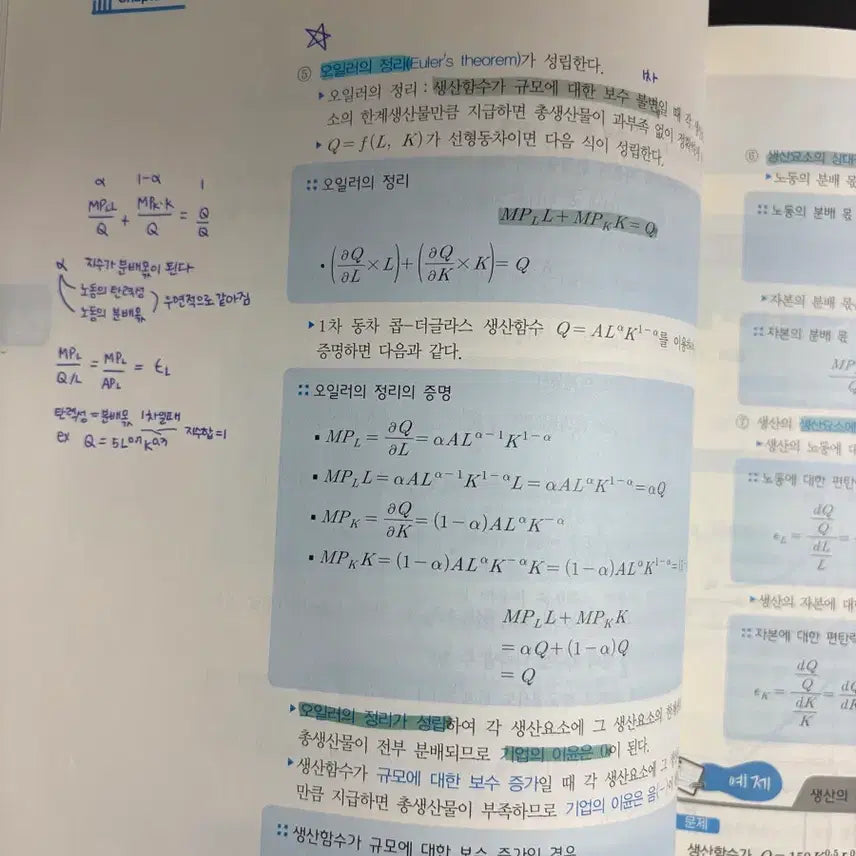 ⑤ 오일러의 정리(Euler's theorem)가 성립한다.
1차
▸오일러의 정리 : 생산함수가 규모에 대한 보수 불변일 때 각
소의 한계생산물만큼 지급하면 총생산물이 과부족 없이
▸Q=f(L, K)가 선형동차이면 다음 식이 성립한다.
오일러의 정리
MP_L L+MP_K K=Q
• (∂Q/∂L × L)+(∂Q/∂K × K)=Q
▸1차 동차 콥-더글라스 생산함수 Q=AL^αK^(1-α)를
증명하면 다음과 같다.
오일러의 정리의 증명
▪ MP_L = ∂Q/∂L = αAL^(α-1)K^(1-α)
▪ MP_L L = αAL^(α-1)K^(1-α)L = αAL^αK^(1-α) = αQ
▪ MP_K = ∂Q/∂K = (1-α)AL^αK^(-α)
▪ MP_K K = (1-α)AL^αK^(-α)K = (1-α)AL^αK^(1-α) =
MP_L L+MP_K K
= αQ+(1-α)Q
= Q
▸오일러의 정리가 성립하여 각 생산요소에 그 생산요소의
총생산물이 전부 분배되므로 기업의 이윤은 0이 된다.
▸생산함수가 규모에 대한 보수 증가일 때 각 생산요소에 그
만큼 지급하면 총생산물이 부족하므로 기업의 이윤은 음(-)이
생산함수가 규모에 대한 보수 증가인 경우
α 1-α 1
MP_L·L/Q + MP_K·K/Q = Q/Q
α 지수가 분배몫이 된다
노동의 탄력성
노동의 분배몫
우연적으로 같아짐
MP_L/(Q/L) = MP_L/AP_L = ε_L
탄력성 = 분배몫 1차일때
ex Q = 5L^0.7 K^0.3 지수합=1
⑥ 생산요소의 상대
▸노동의 분배 몫
노동의 분배 몫
▸자본의 분배 몫
자본의 분배 몫
MP
Q
⑦ 생산의 생산요소에
▸생산의 노동에 대
노동에 대한 편탄
ε_L = (dQ/Q)/(dL/L) =
▸생산의 자본에 대
자본에 대한 편탄력
ε_K = (dQ/Q)/(dK/K) =
예제
생산의
문제
생산함수가